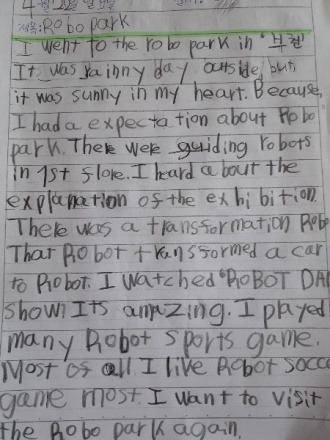 제목: Robo park
I went to the robo park in '부천'
Its was rainny day outside, but
it was sunny in my heart. Because,
I had a expectation about Robo
park. There were guiding robots
in 1st flore. I heard about the
explanation of the exhibition.
There was a transformation Robo
That Robot transformed a car
to Robot. I watched "ROBOT DA
show! Its amazing. I played
many Robot sports game.
Most of all I like Robot socc
game most. I want to visit
the Robo park again.